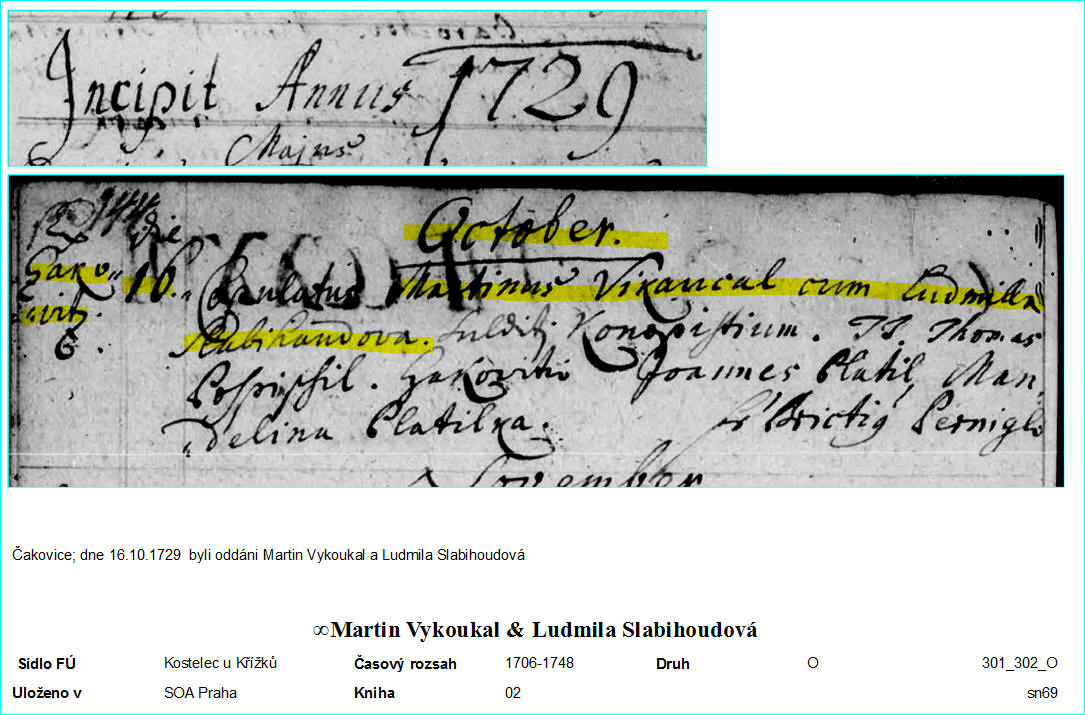 Incipit Annus 1729
Majus
Die October.
Čako„ 16. Copulatus Martinus Vikaucal cum Ludmilla
„vitz. Slabihaudova. Subditi Konopistium. TT. Thomas
6. Pospischil. Czakovitii Joannes Platil, Man„
„delina Platilka. Brictig Pernigl
November
Čakovice; dne 16.10.1729 byli oddáni Martin Vykoukal a Ludmila Slabihoudová
∞Martin Vykoukal & Ludmila Slabihoudová
Sídlo FÚ Kostelec u Křížků Časový rozsah 1706-1748 Druh O 301_302_O
Uloženo v SOA Praha Kniha 02 sn69